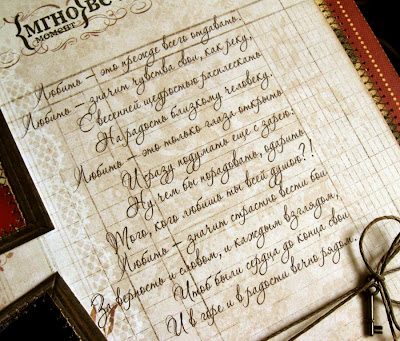 {МГНО}ВЕ
MOMENT
Любить – это прежде всего отдавать.
Любить – значит чувства свои, как реку,
С весенней щедростью расплескать
На радость близкому человеку.
Любить – это только глаза открыть
И сразу подумать еще с зарею:
Ну чем бы порадовать, одарить
Того, кого любишь ты всей душою?!
Любить – значит страстно вести бои
За верность и словом, и каждым взглядом,
Чтоб были сердца до конца свои
И в горе и в радости вечно рядом.